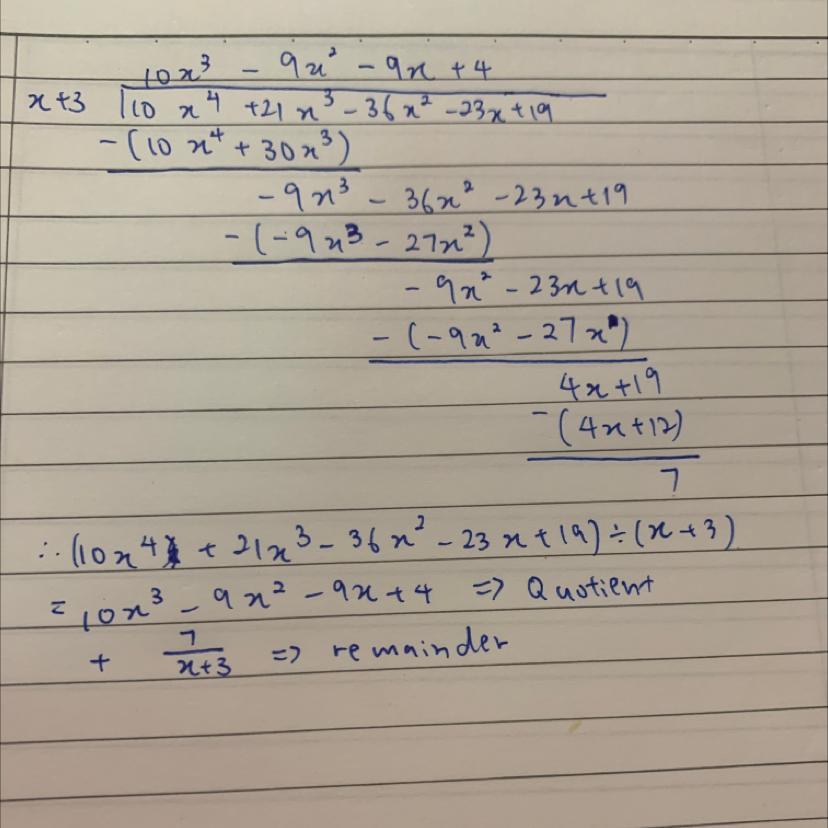 10x³ - 9x² - 9x + 4
x+3 10x⁴ + 21x³ - 36x² - 23x + 19
- (10x⁴ + 30x³)
- 9x³ - 36x² - 23x + 19
- (-9x³ - 27x²)
- 9x² - 23x + 19
- (-9x² - 27x)
4x + 19
- (4x + 12)
7
∴ (10x⁴ + 21x³ - 36x² - 23x + 19) ÷ (x + 3)
= 10x³ - 9x² - 9x + 4 => Quotient
+ 7/(x+3) => remainder